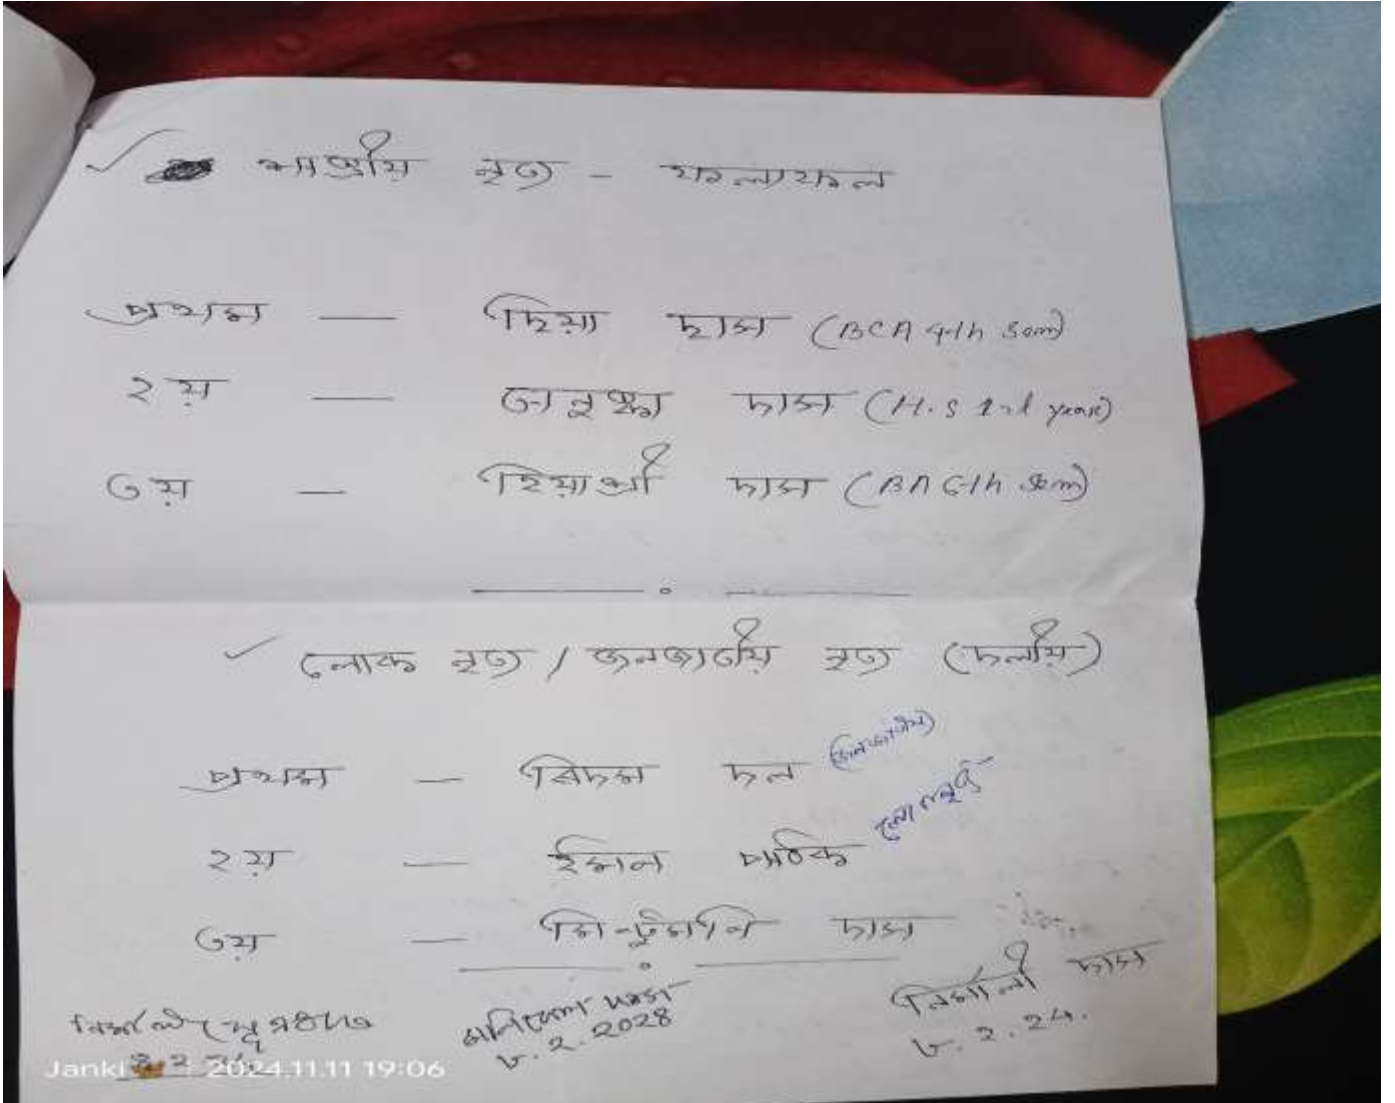 শাস্ত্ৰীয় নৃত্য - ফলাফল
প্ৰথম — দিয়া দাস (BCA 4th Sem)
২য় — অনুষ্কা দাস (H.S 2nd year)
৩য় — হিয়াশ্ৰী দাস (BA 6th Sem)
লোক নৃত্য / জনজাতীয় নৃত্য (দলীয়)
প্ৰথম — নিচমা দল (জনজাতীয়)
২য় — ইমন পাঠক লোকনৃত্য
৩য় — মিন্টুমনি দাস
৮.২.2024
নিৰ্মালী দাস
৮.২.24.
Janki 2024.11.11 19:06